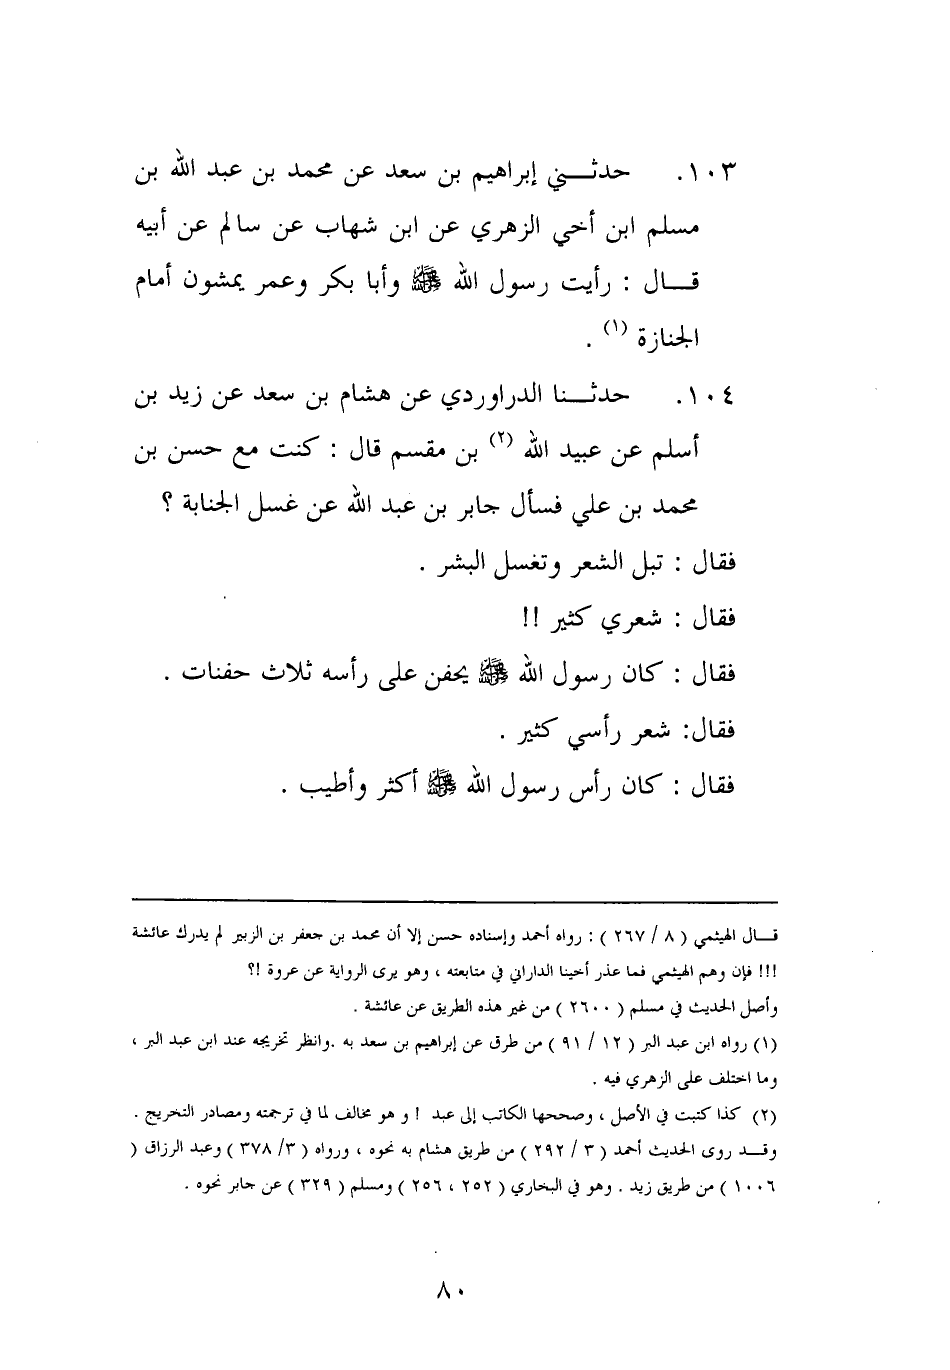 ١٠٣. حدثـــني إبراهيم بن سعد عن محمد بن عبد الله بن
مسلم ابن أخي الزهري عن ابن شهاب عن سالم عن أبيه
قـــال : رأيت رسول الله ﷺ وأبا بكر وعمر يمشون أمام
الجنازة (١) .
١٠٤. حدثـــنا الدراوردي عن هشام بن سعد عن زيد بن
أسلم عن عبيد الله (٢) بن مقسم قال : كنت مع حسن بن
محمد بن علي فسأل جابر بن عبد الله عن غسل الجنابة ؟
فقال : تبل الشعر وتغسل البشر .
فقال : شعري كثير !!
فقال : كان رسول الله ﷺ يحفن على رأسه ثلاث حفنات .
فقال: شعر رأسي كثير .
فقال : كان رأس رسول الله ﷺ أكثر وأطيب .
قـــال الهيثمي ( ٨ / ٢٦٧ ) : رواه أحمد وإسناده حسن إلا أن محمد بن جعفر بن الزبير لم يدرك عائشة
!!! فإن وهم الهيثمي فما عذر أخينا الداراني في متابعته ، وهو يرى الرواية عن عروة !؟
وأصل الحديث في مسلم ( ٢٦٠٠ ) من غير هذه الطريق عن عائشة .
(١) رواه ابن عبد البر ( ١٢ / ٩١ ) من طرق عن إبراهيم بن سعد به .وانظر تخريجه عند ابن عبد البر ،
وما اختلف على الزهري فيه .
(٢) كذا كتبت في الأصل ، وصححها الكاتب إلى عبد ! و هو مخالف لما في ترجمته ومصادر التخريج .
وقـــد روى الحديث أحمد ( ٣ / ٢٩٢ ) من طريق هشام به نحوه ، ورواه ( ٣/ ٣٧٨ ) وعبد الرزاق (
١٠٠٦ ) من طريق زيد . وهو في البخاري ( ٢٥٢ ، ٢٥٦ ) ومسلم ( ٣٢٩ ) عن جابر نحوه .
٨٠